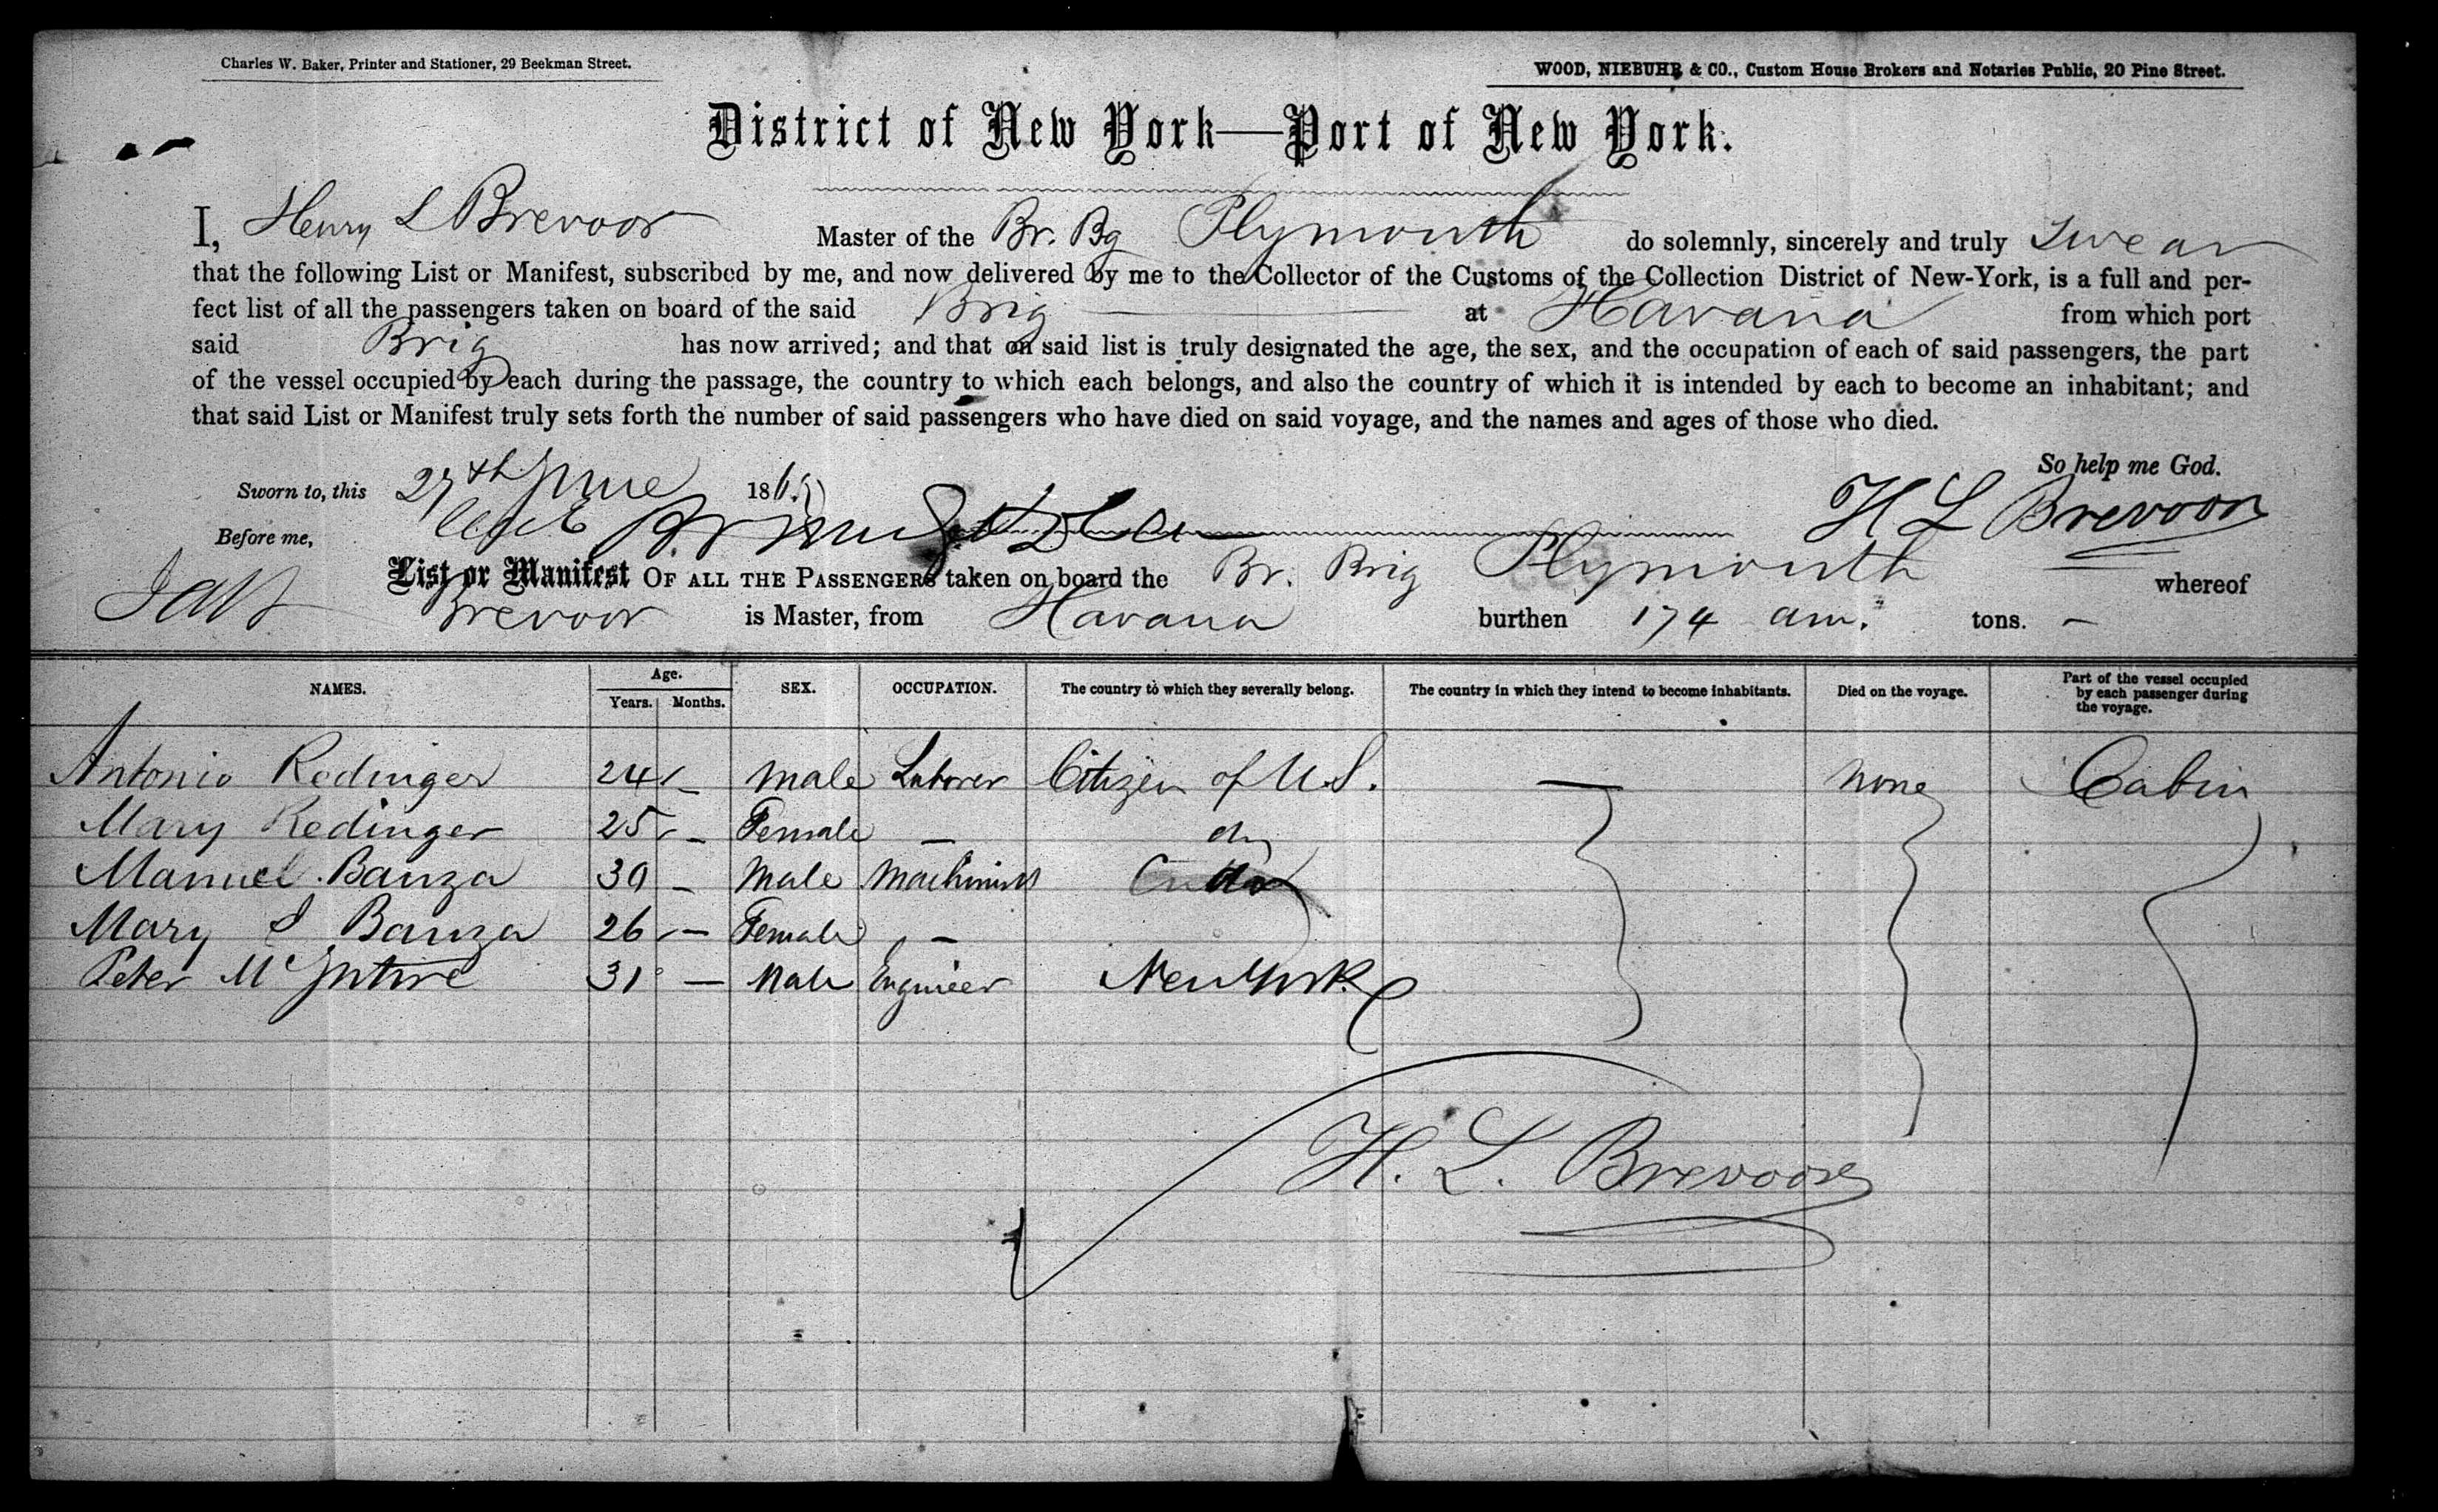 Charles W. Baker, Printer and Stationer, 29 Beekman Street.
WOOD, NIEBUHR & CO., Custom House Brokers and Notaries Public, 20 Pine Street.
District of New York—Port of New York.
I, Henry L Brevoor Master of the Br. Bg Plymouth do solemnly, sincerely and truly Swear
that the following List or Manifest, subscribed by me, and now delivered by me to the Collector of the Customs of the Collection District of New-York, is a full and per-
fect list of all the passengers taken on board of the said Brig at Havana from which port
said Brig has now arrived; and that on said list is truly designated the age, the sex, and the occupation of each of said passengers, the part
of the vessel occupied by each during the passage, the country to which each belongs, and also the country of which it is intended by each to become an inhabitant; and
that said List or Manifest truly sets forth the number of said passengers who have died on said voyage, and the names and ages of those who died.
So help me God.
Sworn to, this 27th June 186
H L Brevoor
Before me,
List or Manifest OF ALL THE PASSENGERS taken on board the Br. Brig Plymouth whereof
Brevoor is Master, from Havana burthen 174 am. tons. —
NAMES. Age. Years. Months. SEX. OCCUPATION. The country to which they severally belong. The country in which they intend to become inhabitants. Died on the voyage. Part of the vessel occupied by each passenger during the voyage.
Antonio Redinger 24 — Male Laborer Citizen of U.S. — None Cabin
Mary Redinger 25 — Female — do
Manuel Banza 30 — Male Machinist
Mary S Banza 26 — Female —
Peter McIntire 31 — Male Engineer New York
H. L. Brevoor